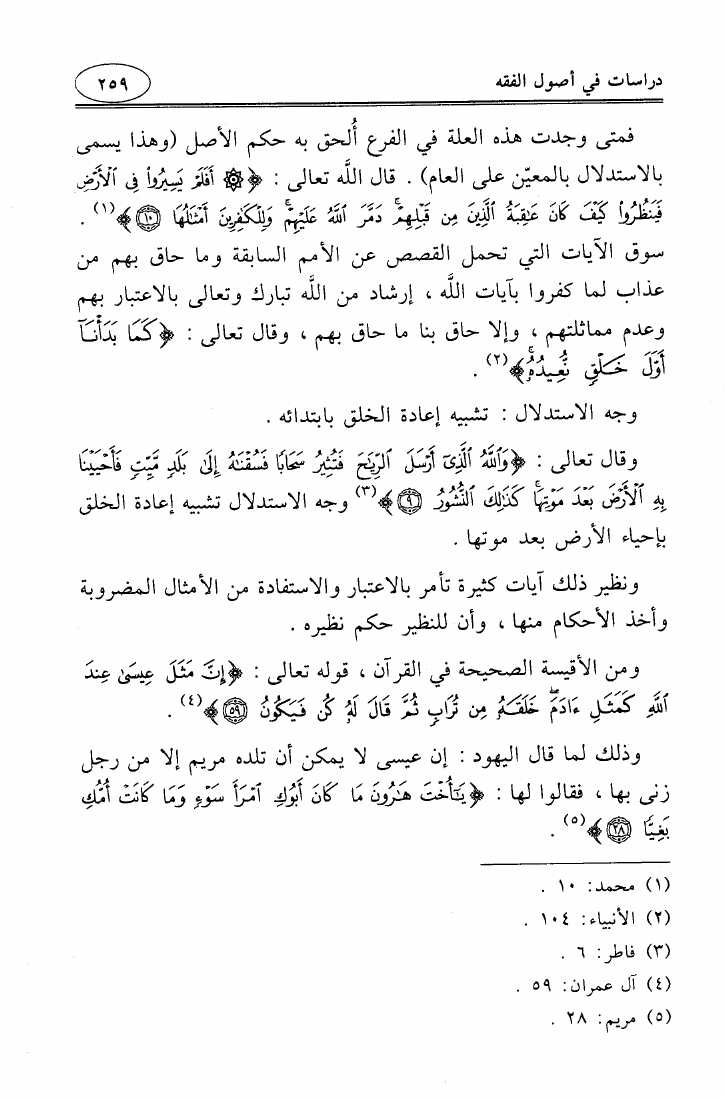 دراسات في أصول الفقه
٢٥٩
فمتى وجدت هذه العلة في الفرع أُلحق به حكم الأصل (وهذا يسمى
بالاستدلال بالمعيّن على العام) . قال اللَّه تعالى : ﴿۞ أَفَلَمْ يَسِيرُوا۟ فِى ٱلْأَرْضِ
فَيَنظُرُوا۟ كَيْفَ كَانَ عَٰقِبَةُ ٱلَّذِينَ مِن قَبْلِهِمْ ۚ دَمَّرَ ٱللَّهُ عَلَيْهِمْ ۖ وَلِلْكَٰفِرِينَ أَمْثَٰلُهَا ۝١٠﴾(١) .
سوق الآيات التي تحمل القصص عن الأمم السابقة وما حاق بهم من
عذاب لما كفروا بآيات اللَّه ، إرشاد من اللَّه تبارك وتعالى بالاعتبار بهم
وعدم مماثلتهم ، وإلا حاق بنا ما حاق بهم ، وقال تعالى : ﴿كَمَا بَدَأْنَآ
أَوَّلَ خَلْقٍ نُّعِيدُهُۥ ۚ﴾(٢) .
وجه الاستدلال : تشبيه إعادة الخلق بابتدائه .
وقال تعالى : ﴿وَٱللَّهُ ٱلَّذِىٓ أَرْسَلَ ٱلرِّيَٰحَ فَتُثِيرُ سَحَابًا فَسُقْنَٰهُ إِلَىٰ بَلَدٍ مَّيِّتٍ فَأَحْيَيْنَا
بِهِ ٱلْأَرْضَ بَعْدَ مَوْتِهَا ۚ كَذَٰلِكَ ٱلنُّشُورُ ۝٩﴾(٣) وجه الاستدلال تشبيه إعادة الخلق
بإحياء الأرض بعد موتها .
ونظير ذلك آيات كثيرة تأمر بالاعتبار والاستفادة من الأمثال المضروبة
وأخذ الأحكام منها ، وأن للنظير حكم نظيره .
ومن الأقيسة الصحيحة في القرآن ، قوله تعالى : ﴿إِنَّ مَثَلَ عِيسَىٰ عِندَ
ٱللَّهِ كَمَثَلِ ءَادَمَ ۖ خَلَقَهُۥ مِن تُرَابٍ ثُمَّ قَالَ لَهُۥ كُن فَيَكُونُ ۝٥٩﴾(٤) .
وذلك لما قال اليهود : إن عيسى لا يمكن أن تلده مريم إلا من رجل
زنى بها ، فقالوا لها : ﴿يَٰٓأُخْتَ هَٰرُونَ مَا كَانَ أَبُوكِ ٱمْرَأَ سَوْءٍ وَمَا كَانَتْ أُمُّكِ
بَغِيًّا ۝٢٨﴾(٥) .
(١) محمد: ١٠ .
(٢) الأنبياء: ١٠٤ .
(٣) فاطر: ٦ .
(٤) آل عمران: ٥٩ .
(٥) مريم: ٢٨ .